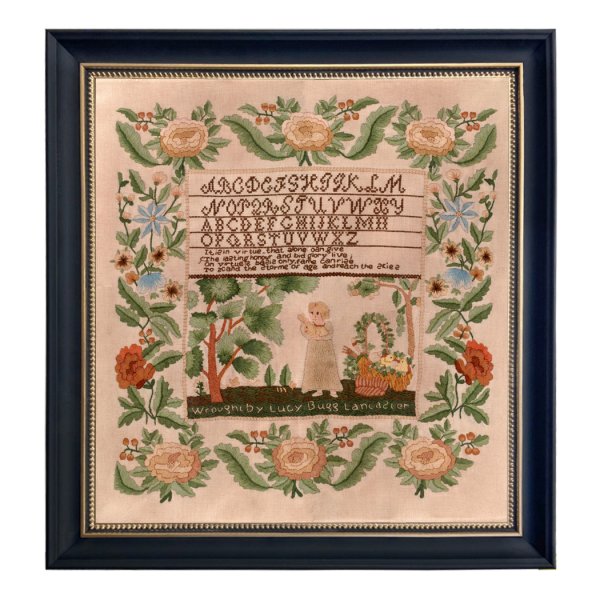 ABCDEFGHIJKLM
NOPQRSTUVWXY
ABCDEFGHIJKLMH
OPQRSTUVWXYZ
It is in virtue that alone can give
The lasting honour and bid glory live
On virtue's basis only fame can rise
To stand the storms of age and reach the skies
Wrought by Lucy Bugg Lancaster